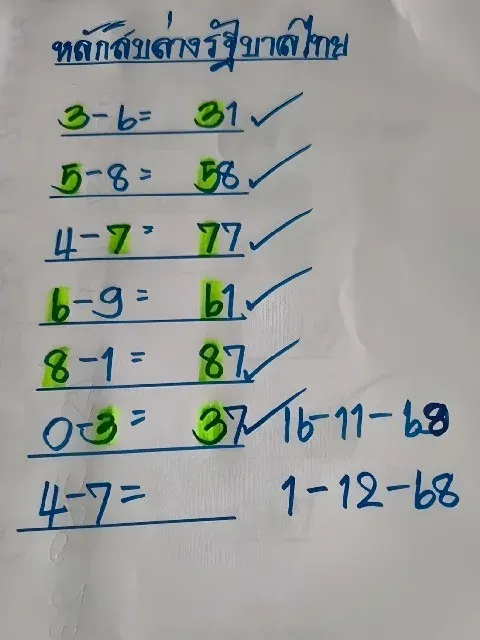 หลักสิบล่างรัฐบาลไทย
3-6= 31 ✓
5-8= 58 ✓
4-7= 77 ✓
6-9= 61 ✓
8-1= 87 ✓
0-3= 37 ✓ 16-11-68
4-7= 1-12-68